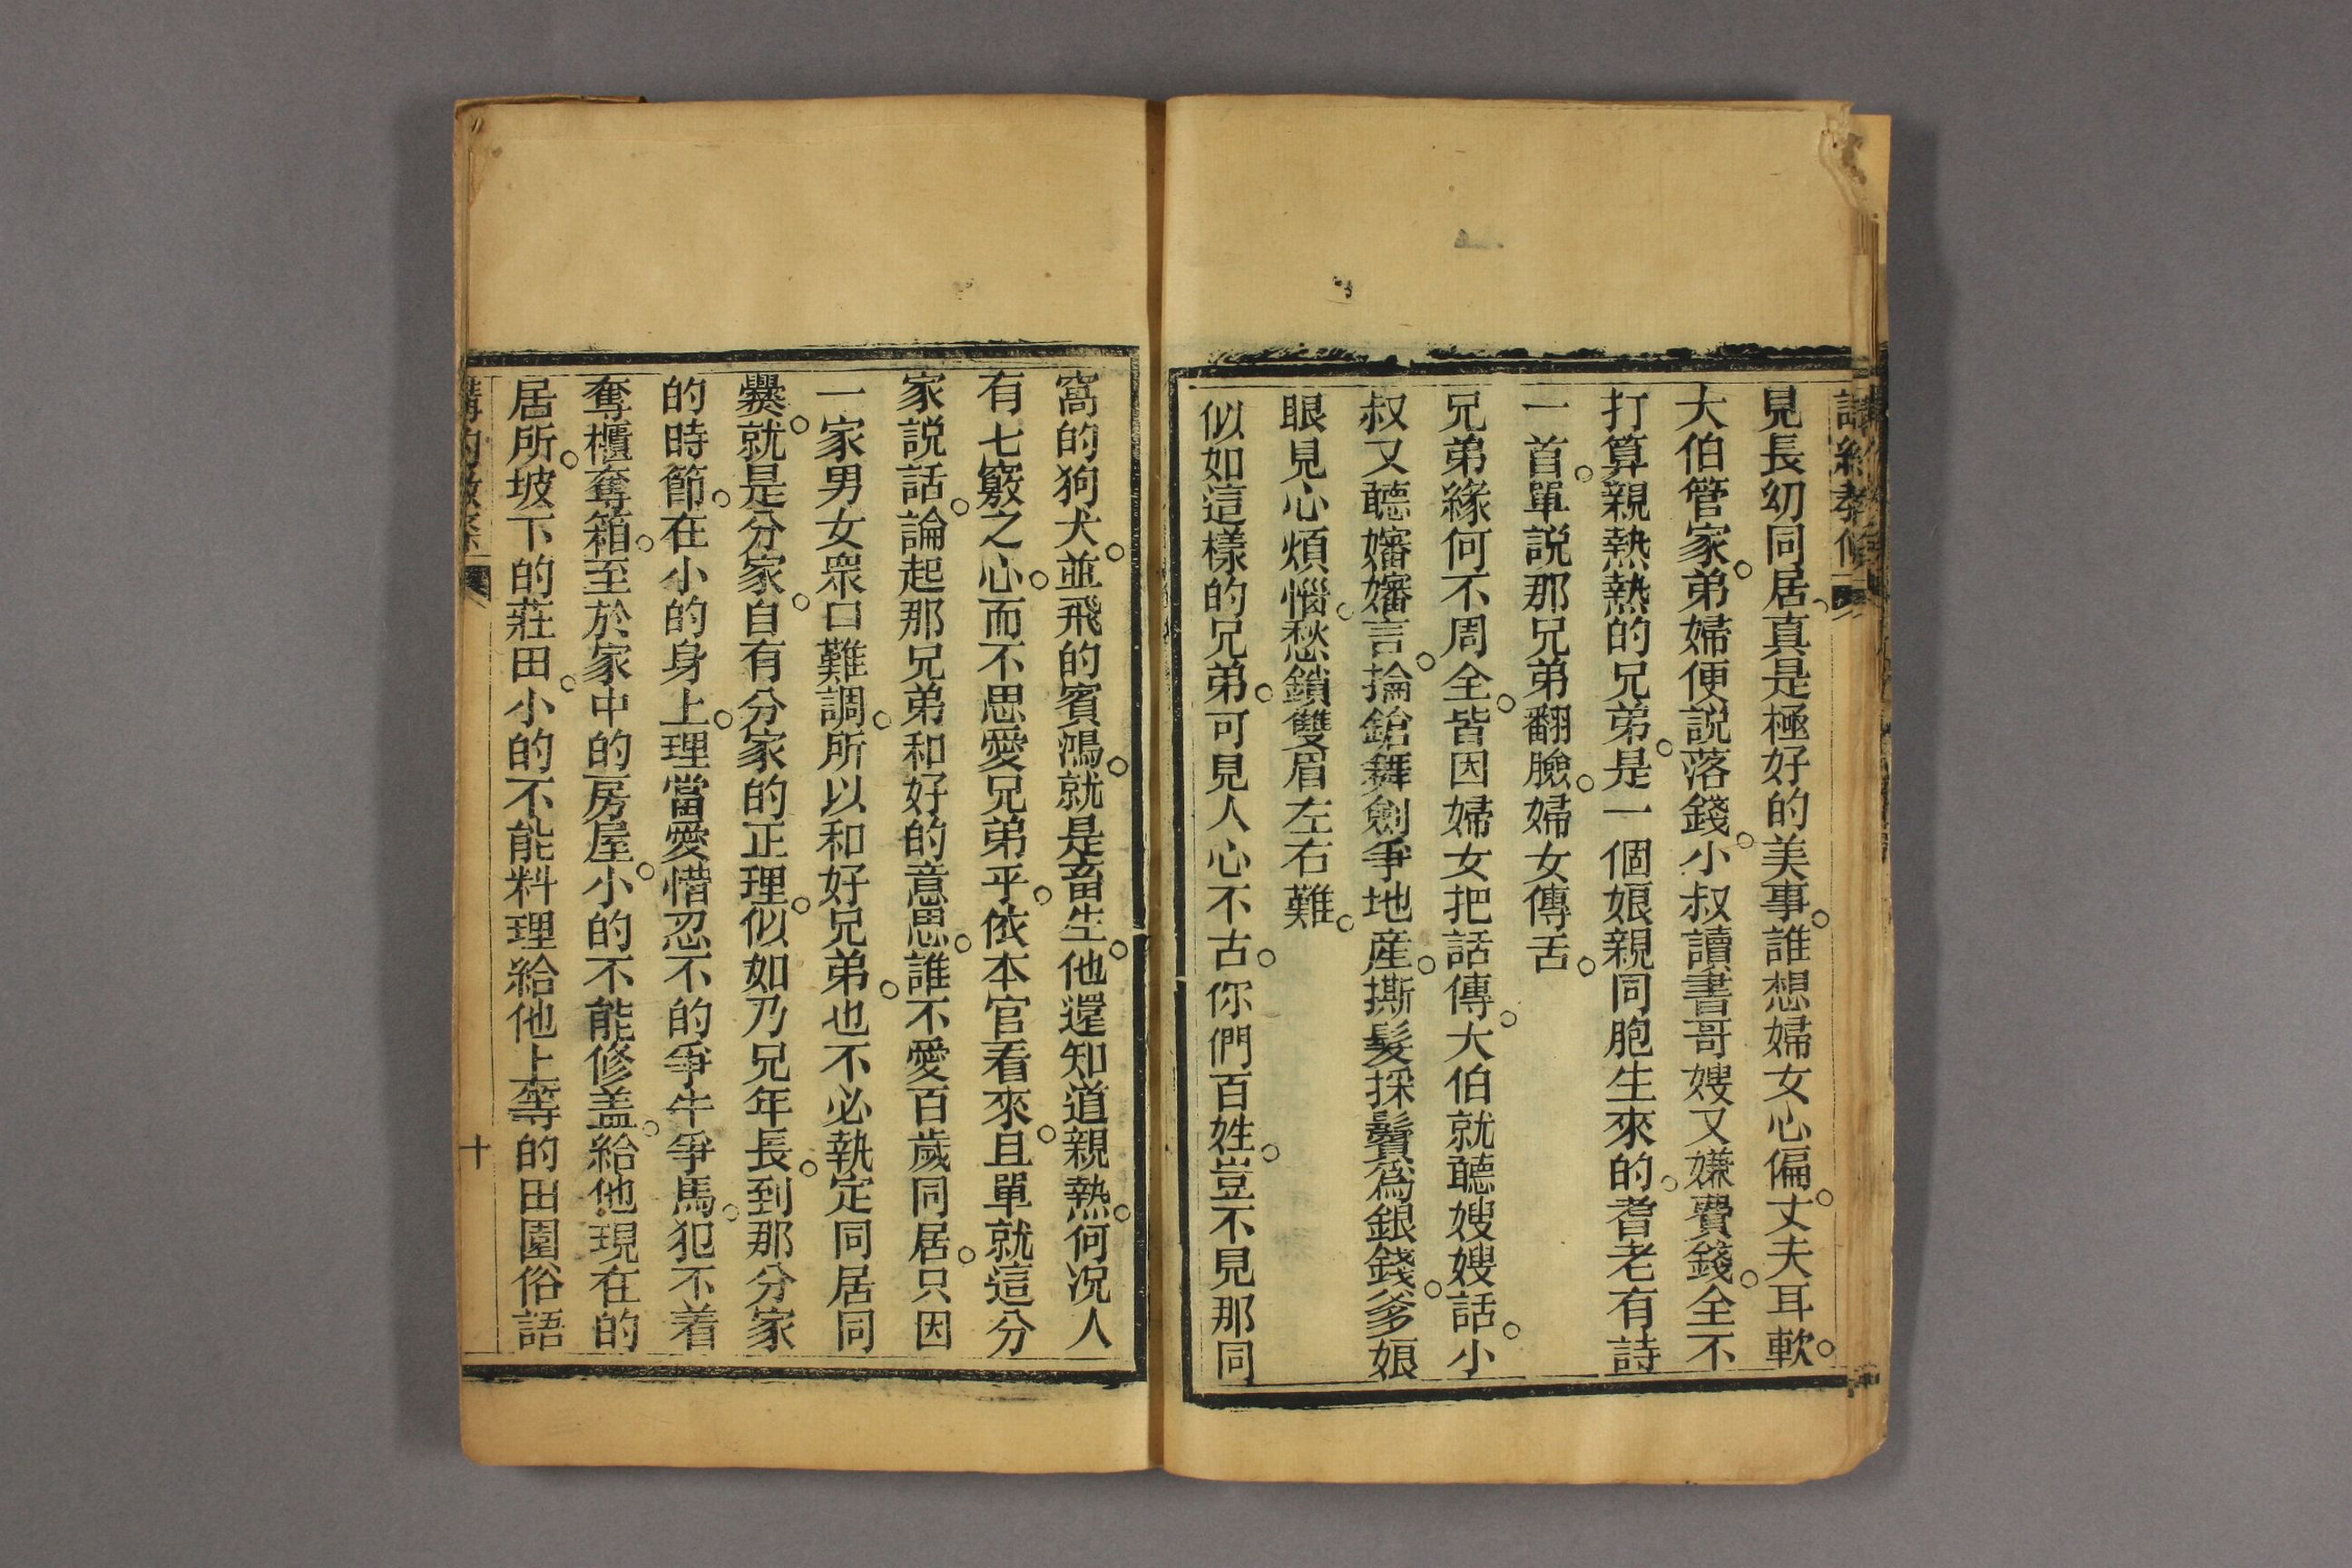 見長幼同居。真是極好的美事。誰想婦女心偏。丈夫耳軟。
大伯管家。弟婦便說落錢。小叔讀書哥嫂又嫌費錢。全不
打算親熱熱的兄弟。是一個娘親同胞生來的。耆老有詩
一首。單説那兄弟翻臉。婦女傳舌。
兄弟緣何不周全。皆因婦女把話傳。大伯就聽嫂嫂話。小
叔又聽嬸嬸言。掄鎗舞劍爭地産。撕髮採鬢為銀錢。爹娘
眼見心煩惱。愁鎖雙眉左右難。
似如這樣的兄弟。可見人心不古。你們百姓。豈不見那同
窩的狗犬。並飛的賓鴻。就是畜生。他還知道親熱。何况人
有七竅之心。而不思愛兄弟乎。依本官看來。且單就這分
家説話。論起那兄弟和好的意思。誰不愛百歲同居。只因
一家男女衆口難調。所以和好兄弟。也不必執定同居同
爨。就是分家。自有分家的正理。似如乃兄年長。到那分家
的時節。在小的身上。理當愛惜忍不的爭牛爭馬。犯不着
奪櫃奪箱。至於家中的房屋。小的不能修盖。給他現在的
居所。坡下的莊田。小的不能料理給他上等的田園俗語
十